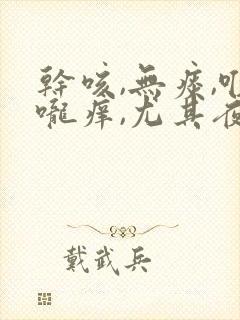 幹咳,無痰,咽
嚨癢,尤其夜
戴武兵